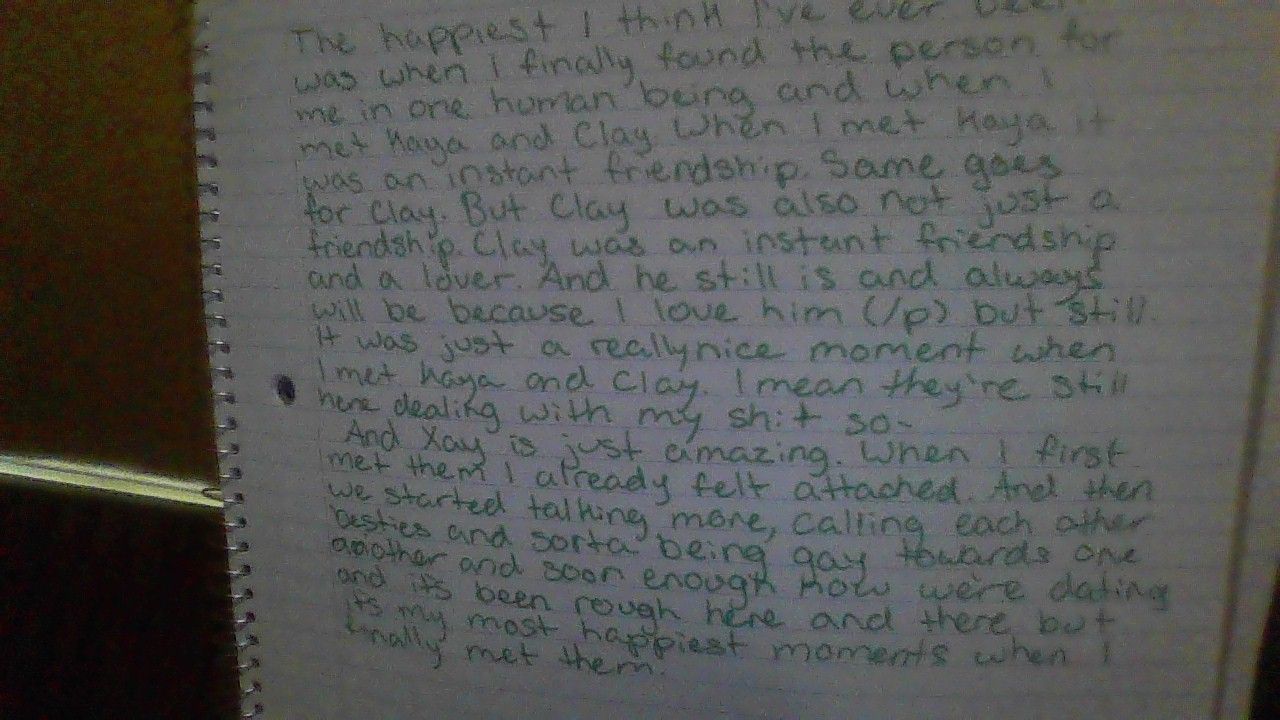 The happiest I think I've ever been
was when I finally found the person for
me in one human being and when I
met Kaya and Clay When I met Kaya it
was an instant friendship. Same goes
for Clay. But Clay was also not just a
friendship. Clay was an instant friendship
and a lover. And he still is and always
will be because I love him (/p) but still.
It was just a reallynice moment when
I met Kaya and Clay. I mean they're still
here dealing with my shit so-
And Xay is just amazing. When I first
met them I already felt attached. And then
we started talking more, calling each other
besties and sorta being gay towards one
another and soon enough now we're dating
and it's been rough here and there but
it's my most happiest moments when I
finally met them.